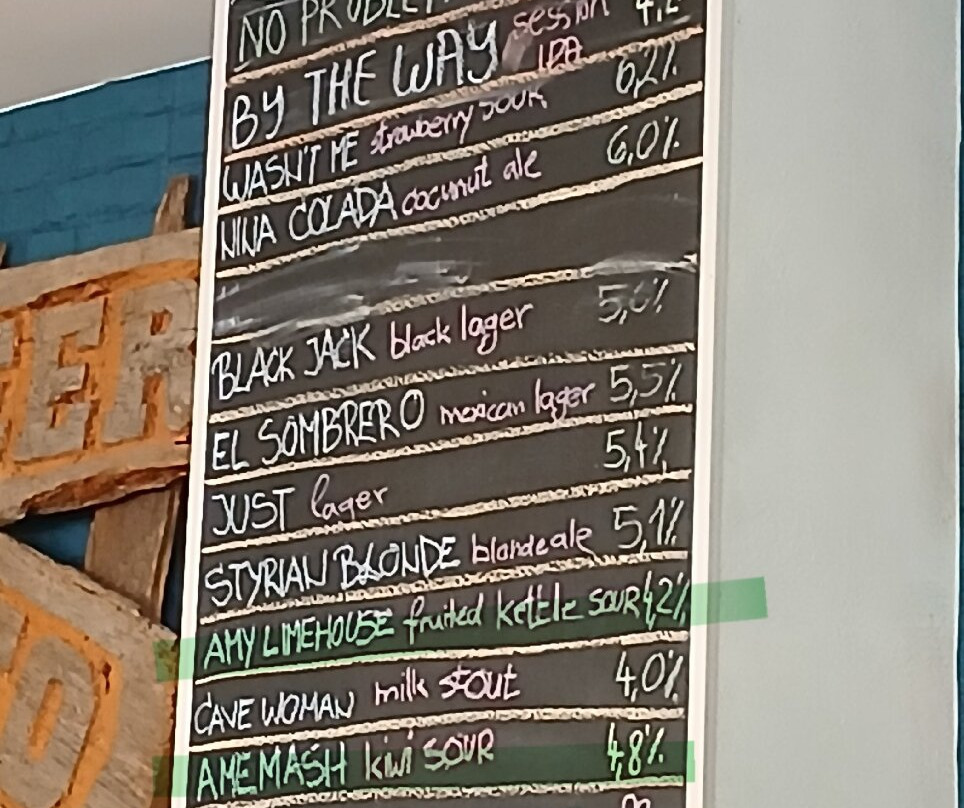 NO PROBLE
BY THE WAY session IPA 4,2
WASN'T ME strawberry SOUR 6,2%
NINA COLADA coconut ale 6,0%
BLACK JACK black lager 5,6%
EL SOMBRERO mexican lager 5,5%
JUST lager 5,4%
STYRIAN BLONDE blonde ale 5,1%
AMY LIMEHOUSE fruited kettle SOUR 4,2%
CAVE WOMAN milk stout 4,0%
AMEMASH kiwi SOUR 4,8%
ER